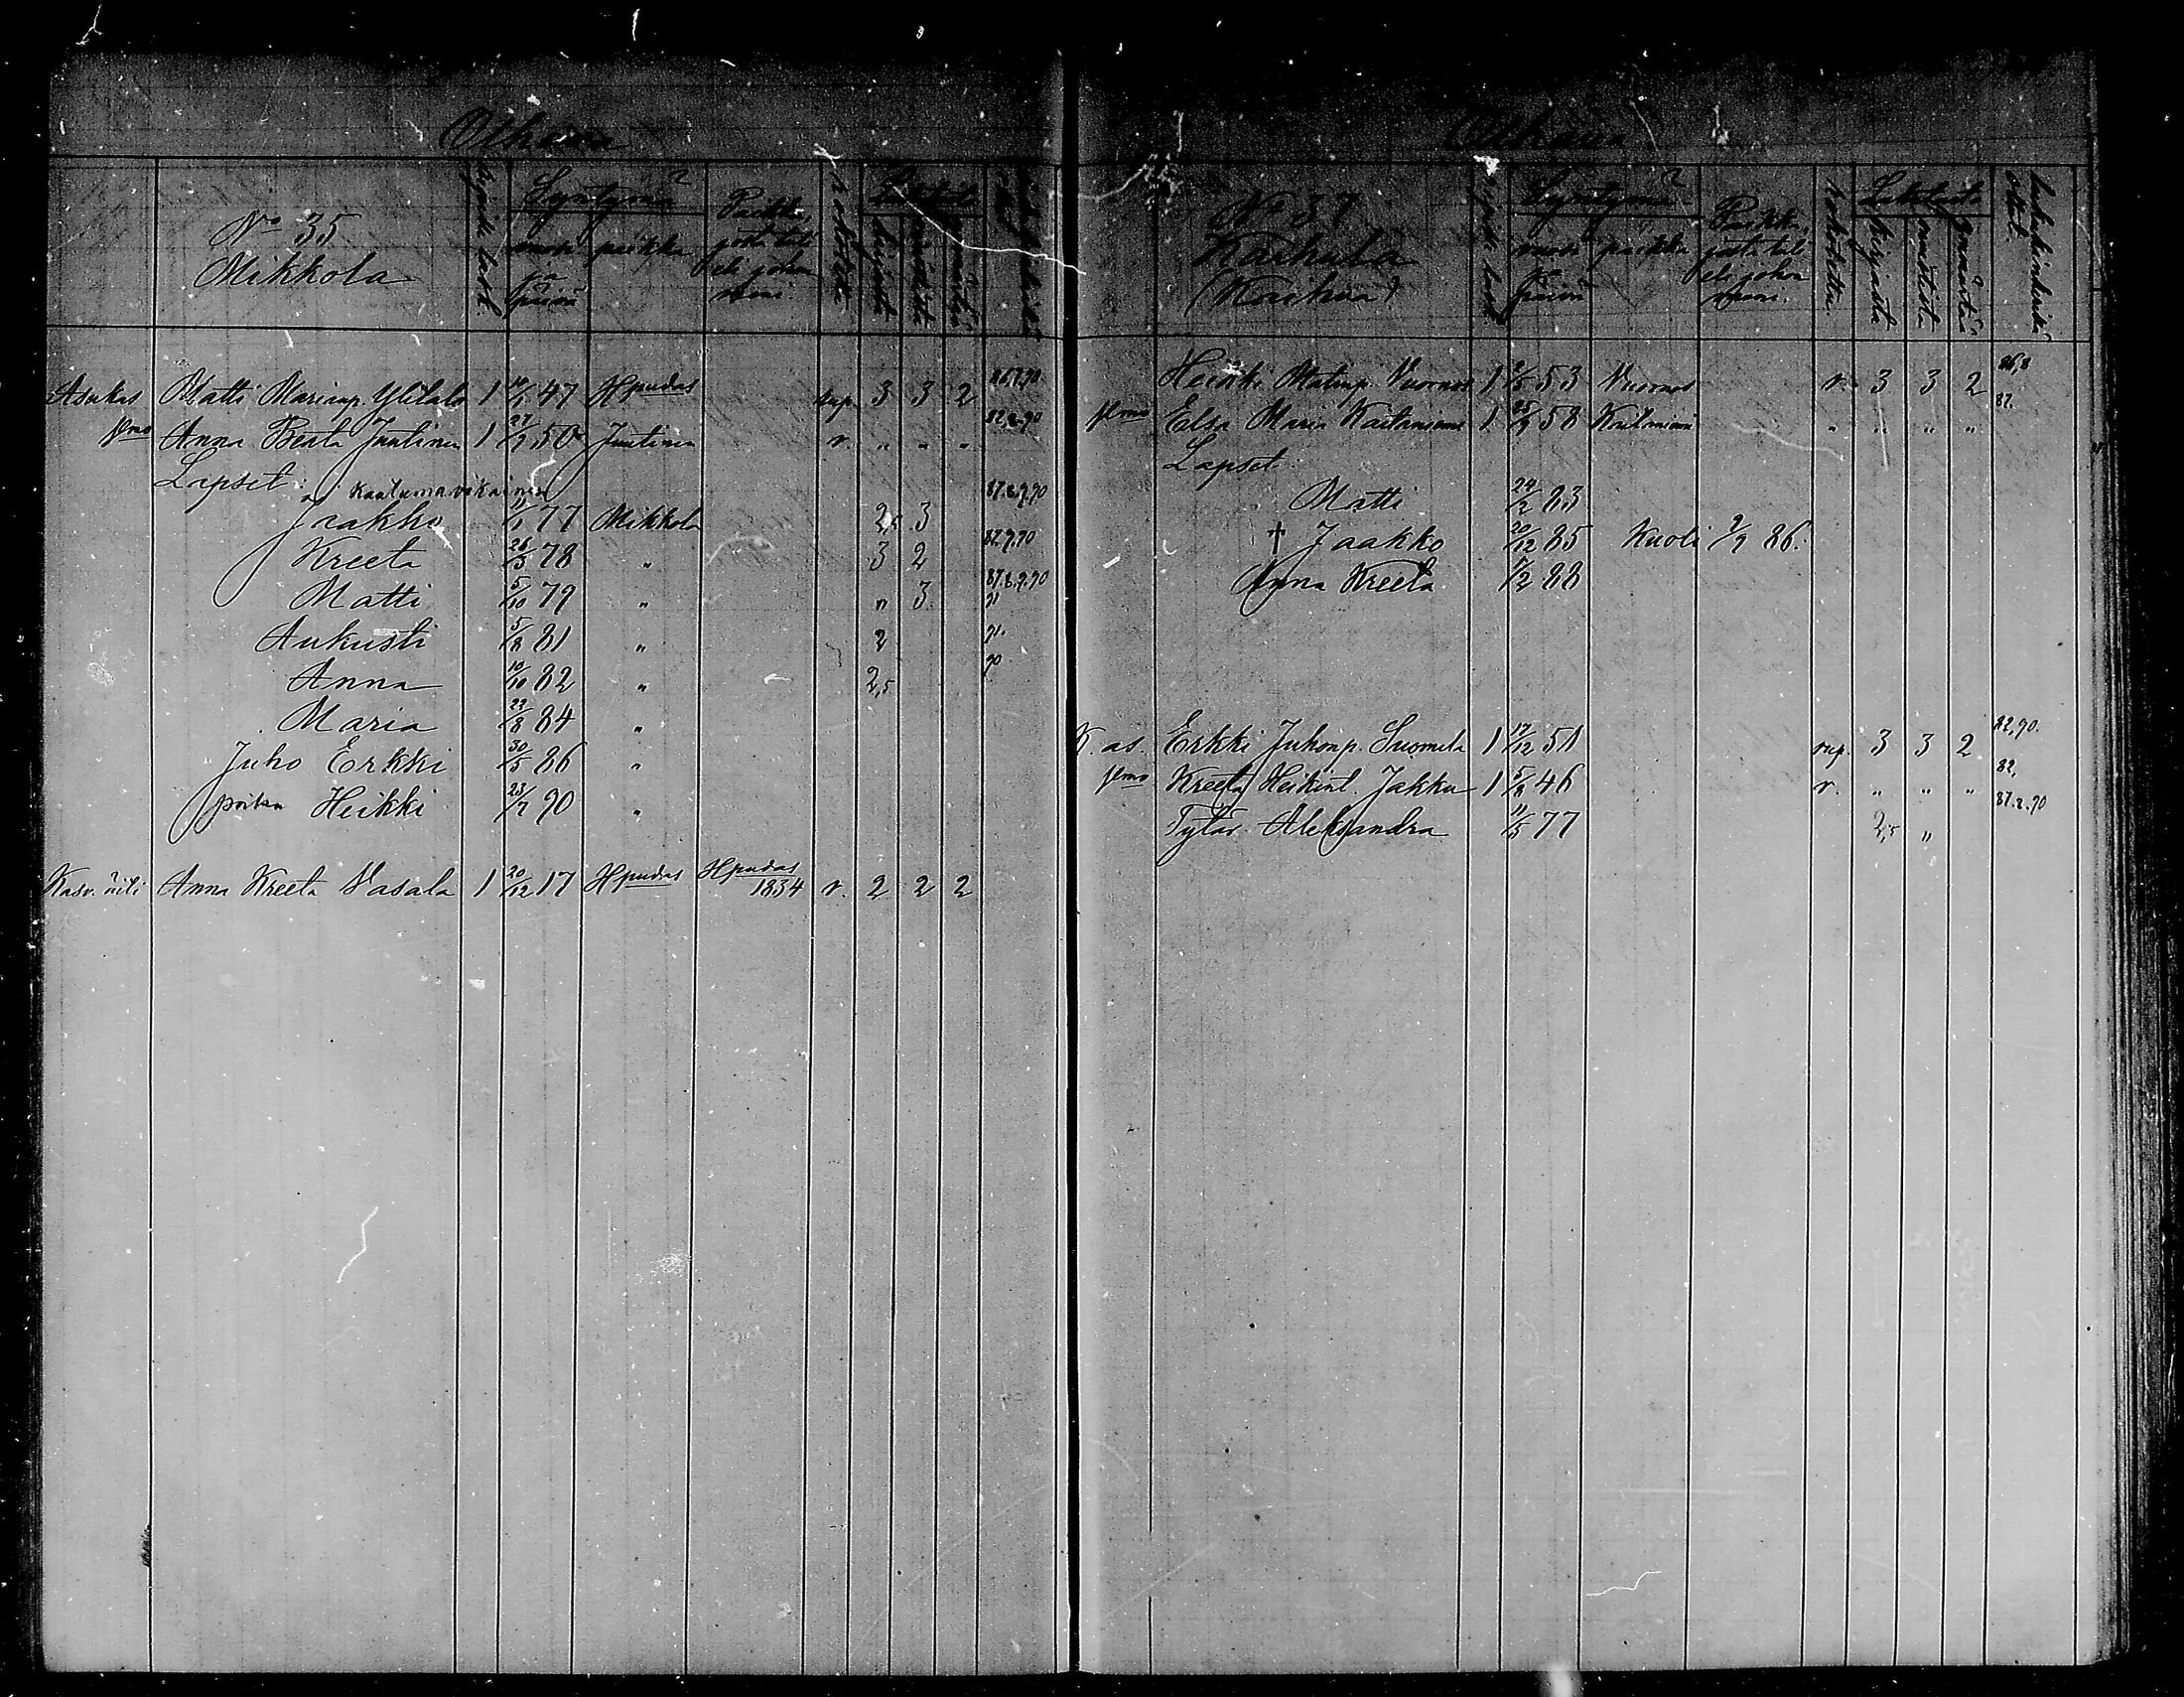 Olhava
No 35
Mikkola
Syntymä
vuosi ja päivä
paikka
Paikka, josta tuli eli johon meni.
Asukas Matti Matinp. Ylitalo 1 10/1 47 Hpudas rup. 3 3 2 86,7,90
vmo Anna Beata Juutinen 1 27/2 50 Juutinen r. " " " 82,8,90
Lapset:
kaatumavikainen
Jaakko 11/1 77 Mikkola 2,5 3 87.8.9.90
Kreeta 26/3 78 " 3 2 87.9.90
Matti 5/10 79 " " 3 87.8.9.90 91
Aukusti 5/8 81 " 2 91.
Anna 10/10 82 " 2,5 90
Maria 23/8 84 "
Juho Erkki 30/5 86 "
poika Heikki 23/7 90 "
Kasv. äiti Anna Kreeta Vasala 1 20/12 17 Hpudas Hpudas 1834 r. 2 2 2
Olhava
No 37
Karhula
(Karhua)
Syntymä
vuosi päivä
paikka
Paikka, josta tuli eli johon meni.
rokotettu.
Lukutaito
kirjasta
muistista
ymmärtä
lukukinkeril ollut.
Heikki Matinp. Vuornos 1 2/5 53 Vuornos r. 3 3 2 86,8
vmo Elsa Maria Kaitaniemi 1 25/9 58 Kaitaniemi " " " " 87.
Lapset
Matti 24/2 83
† Jaakko 20/12 85 Kuoli 2/9 86.
Anna Kreeta 7/2 88
K. as. Erkki Juhonp. Suomela 1 17/12 51 rup. 3 3 2 82,90.
vmo Kreeta Heikint. Jakku 1 5/8 46 r. " " " 82,
Tytär Aleksandra 11/5 77 2,5 " 87.8.90